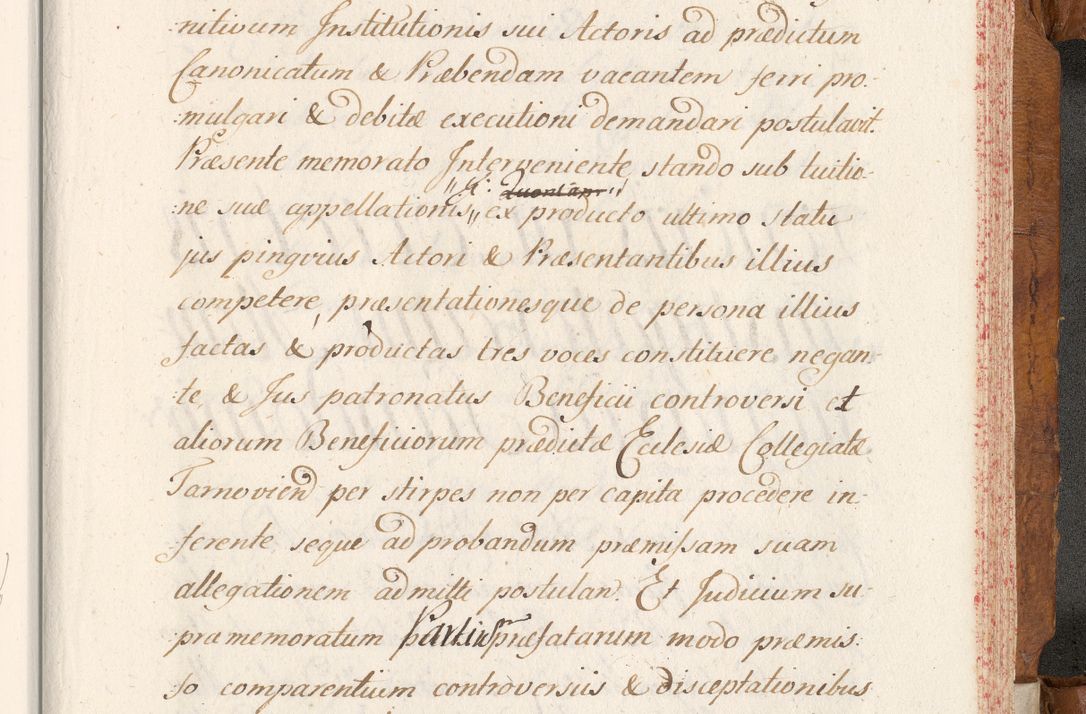 nitivum Institutionis sui Actoris ad prædictum
Canonicatum & Præbendam vacantem ferri pro:
:mulgari & debitæ executioni demandari postulavit.
Præsente memorato Interveniente, stando sub tuitio-
:ne suæ appellationis,, ex producto ultimo statu
jus pingvius Actori & Præsentantibus illius
competere, præsentationesque de persona illius
factas & productas tres voces constituere negan:
:te & Jus patronatus Beneficii controversi et
aliorum Beneficiorum prædictæ Ecclesiæ Collegiatæ
Tarnovien per stirpes non per capita procedere in:
:ferente seque ad probandum præmissam suam
allegationem admitti postulan. Et Judicium su:
:pramemoratum Partium præfatarum modo præmis:
:so comparentium controversiis & disceptationibus